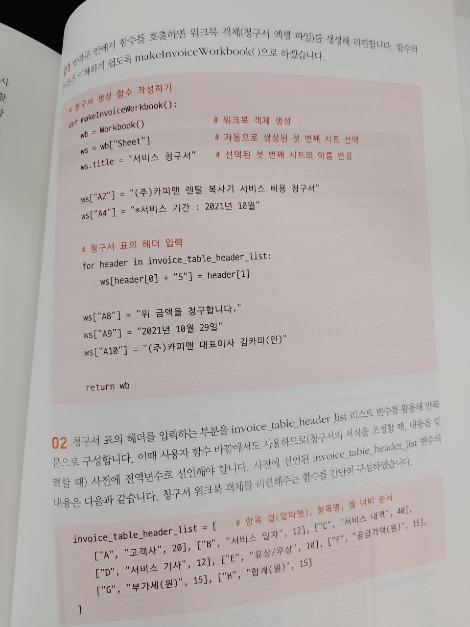 01 반복문 안에서 함수를 호출하면 워크북 객체(청구서 엑셀 파일)를 생성해 리턴합니다. 함수의
이해하기 쉽도록 makeInvoiceWorkbook()으로 하겠습니다.
# 청구서 생성 함수 작성하기
def makeInvoiceWorkbook():
wb = Workbook() # 워크북 객체 생성
ws = wb["Sheet"] # 자동으로 생성된 첫 번째 시트 선택
ws.title = "서비스 청구서" # 선택된 첫 번째 시트의 이름 변경
ws["A2"] = "(주)카피맨 렌탈 복사기 서비스 비용 청구서"
ws["A4"] = "※서비스 기간 : 2021년 10월"
# 청구서 표의 헤더 입력
for header in invoice_table_header_list:
ws[header[0] + "5"] = header[1]
ws["A8"] = "위 금액을 청구합니다."
ws["A9"] = "2021년 10월 29일"
ws["A10"] = "(주)카피맨 대표이사 김카피(인)"
return wb
02 청구서 표의 헤더를 입력하는 부분을 invoice_table_header_list 리스트 변수를 활용해 반복
문으로 구성합니다. 이때 사용자 함수 바깥에서도 사용하므로(청구서의 서식을 조정할 때, 내용을 입
력할 때) 사전에 전역변수로 선언해야 합니다. 사전에 선언된 invoice_table_header_list 변수의
내용은 다음과 같습니다. 청구서 워크북 객체를 리턴해주는 함수를 간단히 구성하였습니다.
invoice_table_header_list = [ # 항목 열(알파벳), 항목명, 셀 너비 순서
["A", "고객사", 20], ["B", "서비스 일자", 12], ["C", "서비스 내역", 40],
["D", "서비스 기사", 12], ["E", "유상/무상", 10], ["F", "공급가액(원)", 15],
["G", "부가세(원)", 15], ["H", "합계(원)", 15]
]